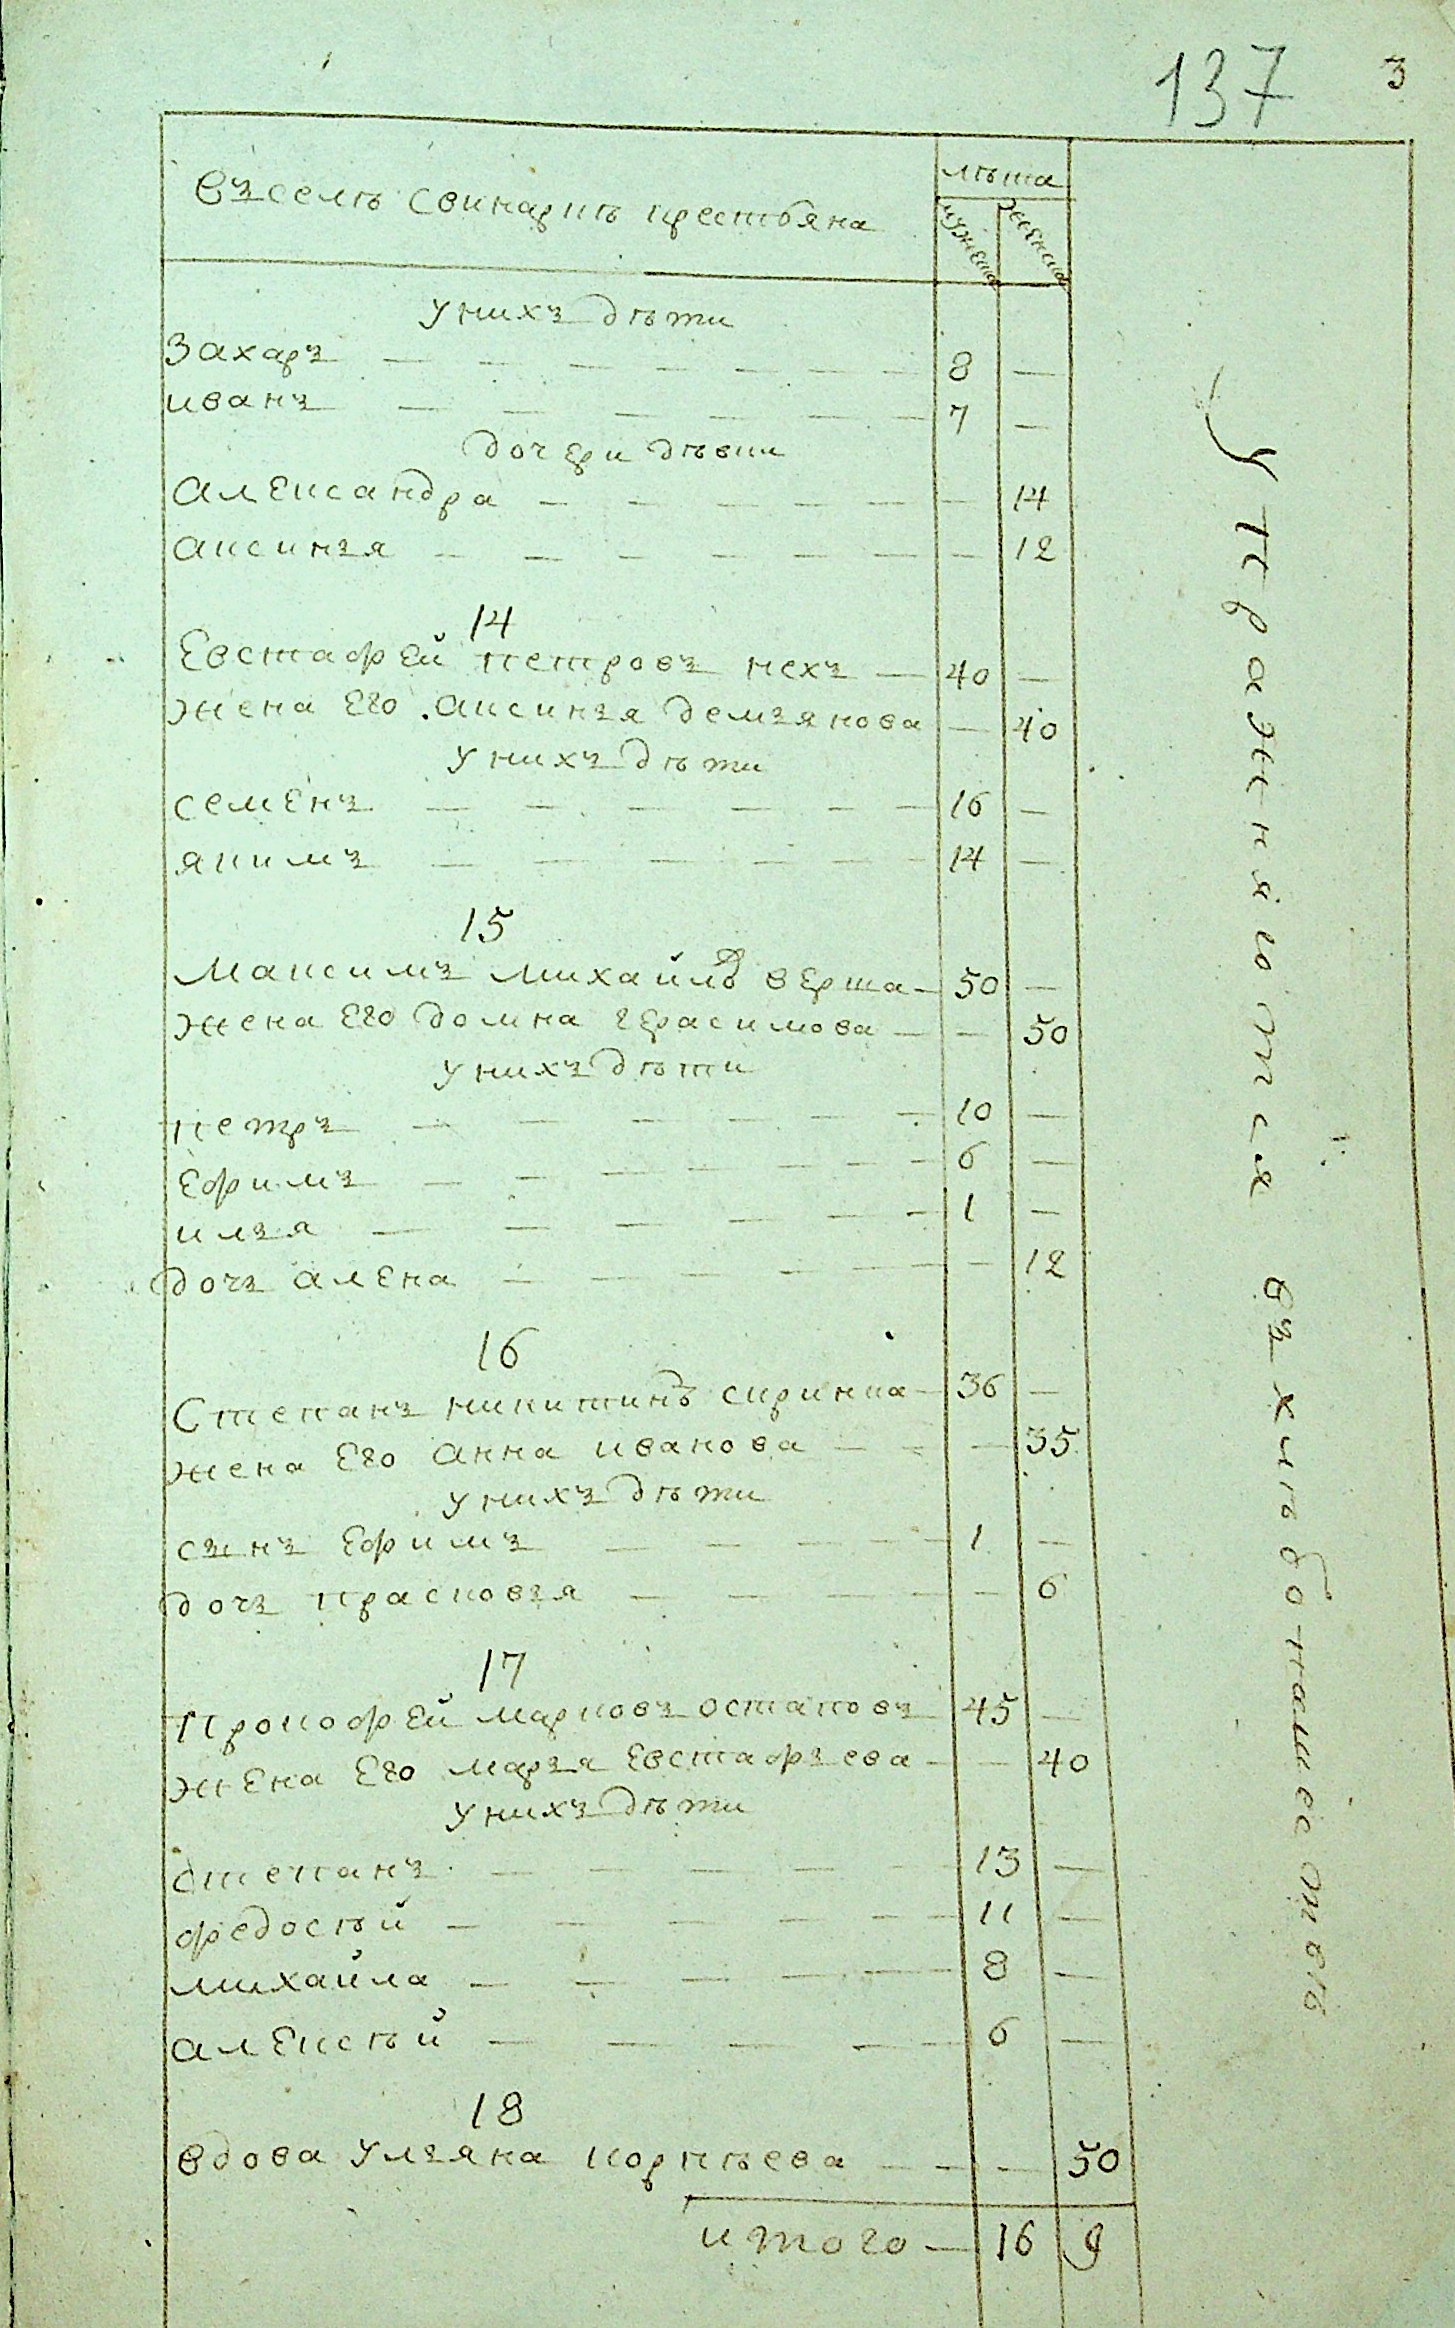 137 3
въ селѣ Свинарнѣ крестьяна
лѣта
мужеска женска
у нихъ дѣти
Захаръ — 8 —
иванъ — 7 —
дочери дѣвки
александра — — 14
аксинъя — — 12
14
Евстафей петровъ нехъ — 40 —
жена Его аксинъя демъянова — 40
у нихъ дѣти
семенъ — 16 —
якимъ — 14 —
15
Максимъ михайлъ верта — 50 —
жена Его домна герасимова — — 50
у нихъ дѣти
петръ — 10 —
Ефимъ — 6 —
илъя — 1 —
дочъ алена — — 12
16
Степанъ никитинъ скринка — 36 —
жена Его анна иванова — — 35
у нихъ дѣти
сынъ Ефимъ — 1 —
дочъ прасковъя — — 6
17
Прокофей марковъ остаповъ 45 —
жена Его маръя Евстафъева — — 40
у нихъ дѣти
степанъ — 13 —
федосѣй — 11 —
михайла — 8 —
алексѣй — 6 —
18
вдова улъяна корнѣева — — 50
итого — 16 9
Упражняются въ хлѣбопашествѣ